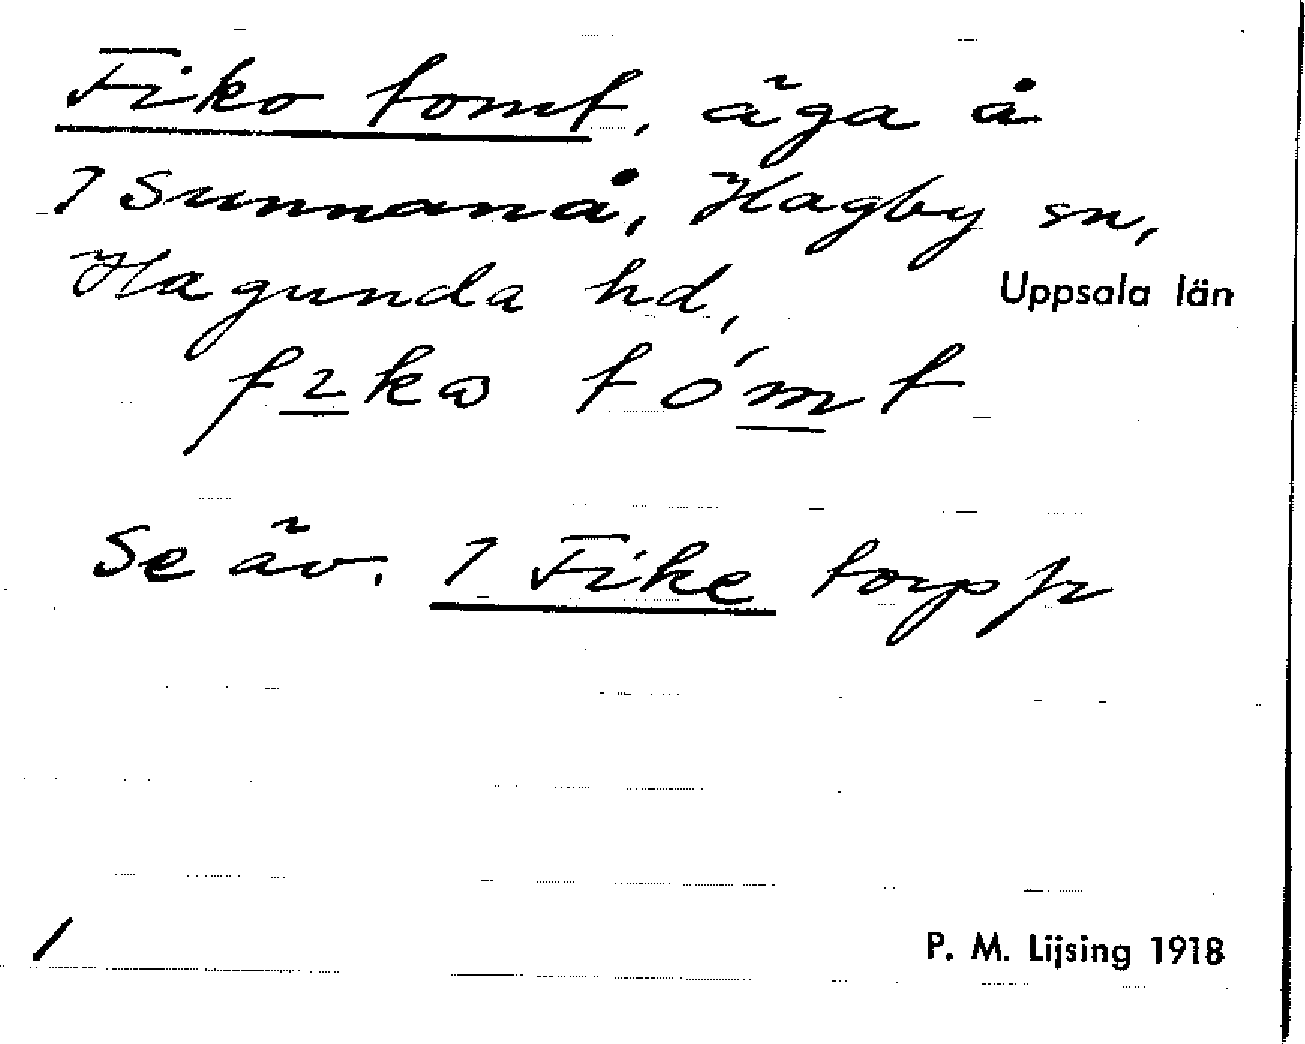 Fiko tomt, äga å
1 Sunnanå, Hagby sn,
Hagunda hd, Uppsala län
fıko tómt
Se äv. 1 Fike torp fr
P. M. Lijsing 1918